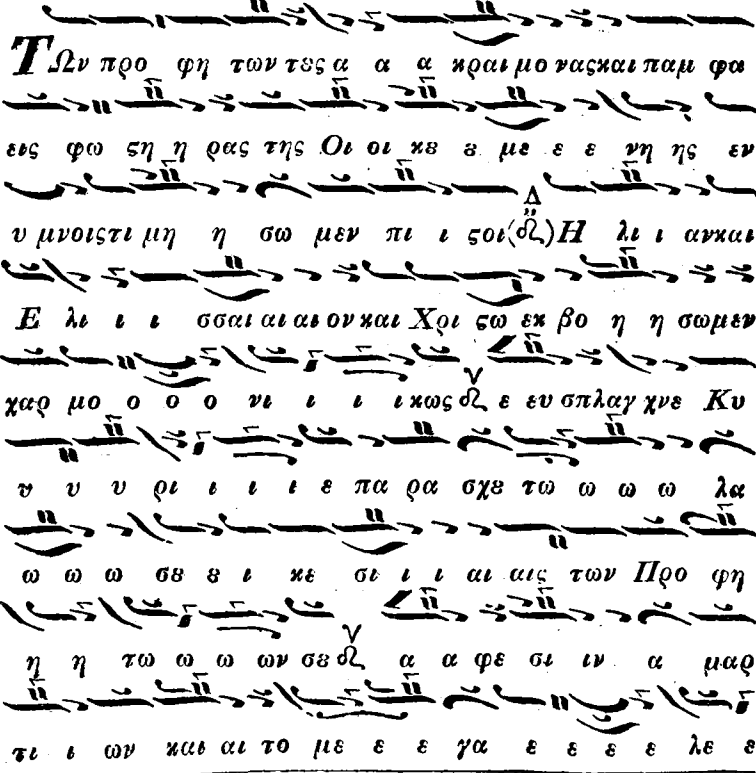 ΤΩν προ φη των τȣς α α α κραι μο ναςκαι παμ φα
εις φω ϛη η ρας της Οι οι κȣ ȣ με ε ε νη ης εν
υ μνοιςτι μη η σω μεν πι ι ϛοι(Δ) Η λι ι ανκαι
Ε λι ι ι σσαι αι αι ον και Χρι ϛω εκ βο η η σωμεν
χαρ μο ο ο ο νι ι ι ι ικως ε ευ σπλαγ χνε Κυ
υ υ υ ρι ι ι ι ε πα ρα σχȣ τω ω ω ω λα
ω ω ω σȣ ȣ ι κε σι ι ι αι αις των Προ φη
η η τω ω ω ων σȣ α α φε σι ιν α μαρ
τι ι ων και αι το με ε ε γα ε ε ε ε λε ε